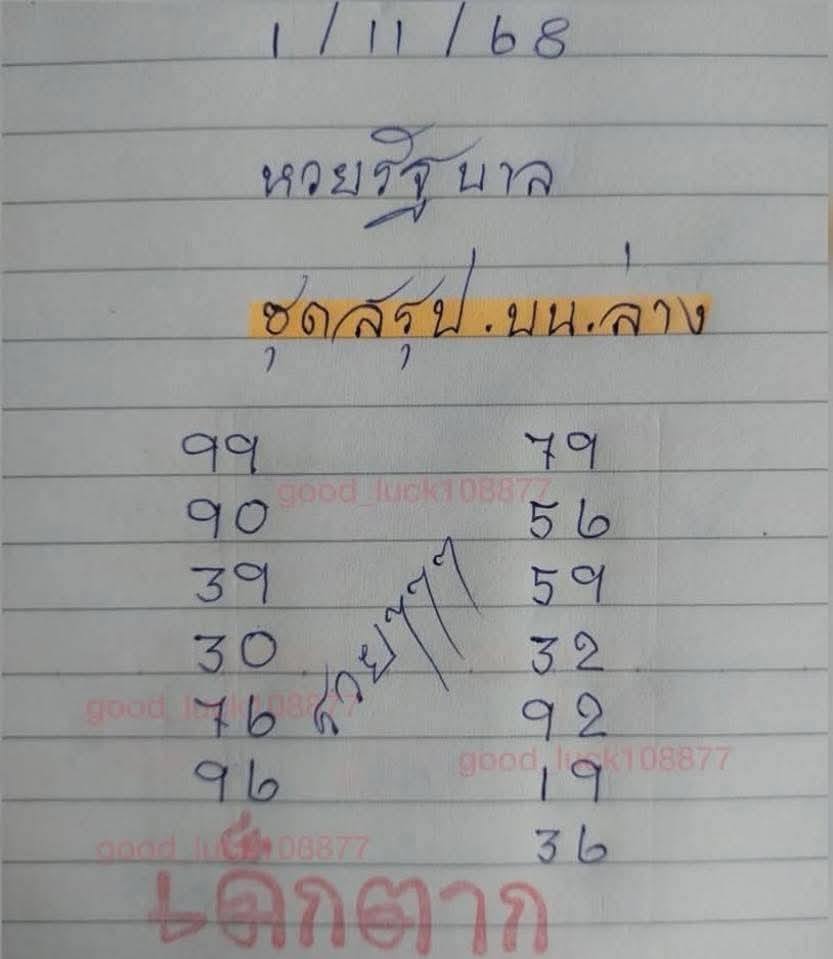 1/11/68
หวยรัฐบาล
ชุดสรุป.บน.ล่าง
99 79
good_luck108877
90 56
39 59
30 32
รวยๆๆๆ
good_luck108877
76 92
good_luck108877
96 19
36
good_luck108877
เด็กตาก